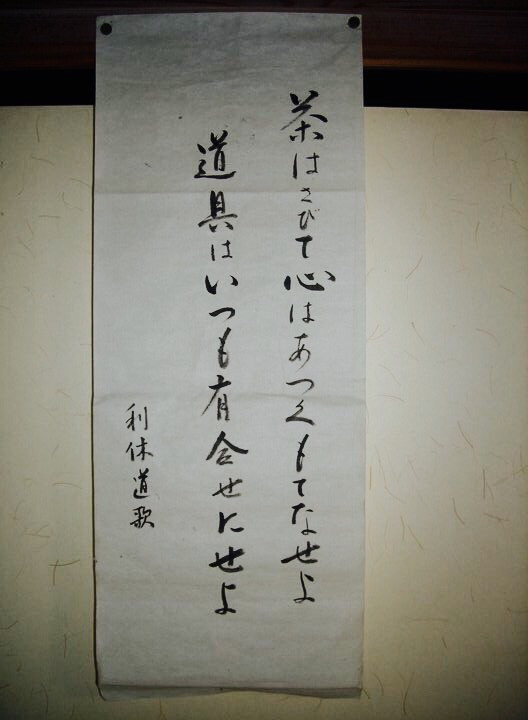 茶はさびて心はあつくもてなせよ
道具はいつも有合せにせよ
利休道歌